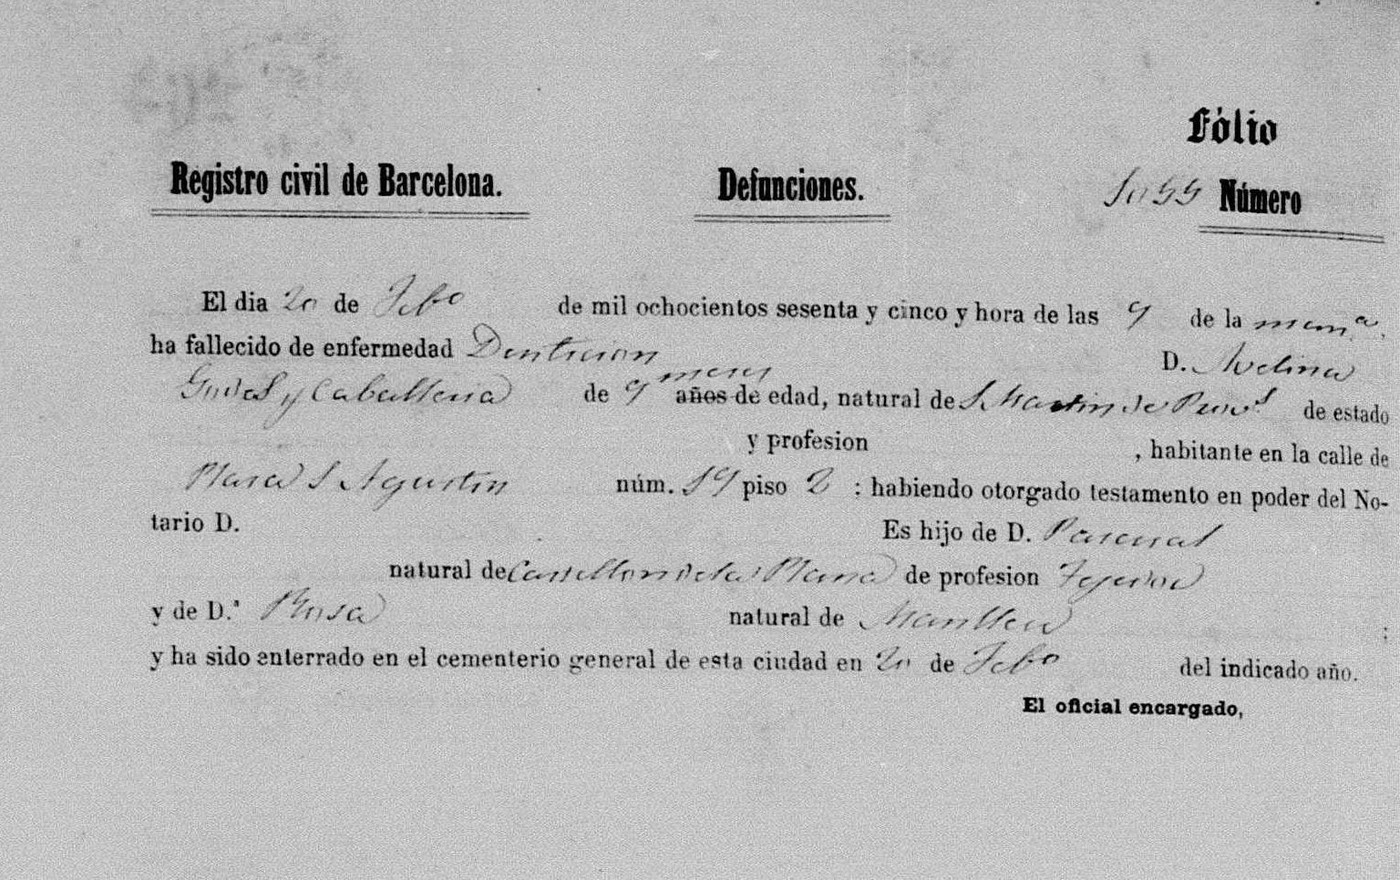 Fólio
Registro civil de Barcelona. Defunciones. 1055 Número
El dia 20 de Febo de mil ochocientos sesenta y cinco y hora de las 9 de la manª.
ha fallecido de enfermedad Denticion D. Avelina
meses
y Caballeria de 9 años de edad, natural de S Martin de Provs de estado
y profesion , habitante en la calle de
Plasa S Agustin núm. 19 piso 2 : habiendo otorgado testamento en poder del No-
tario D. Es hijo de D. Pascual
natural de Castellon de la Plana de profesion Tejedor
y de D.ª Rosa natural de Manlleu ;
y ha sido enterrado en el cementerio general de esta ciudad en 20 de Febo del indicado año.
El oficial encargado,